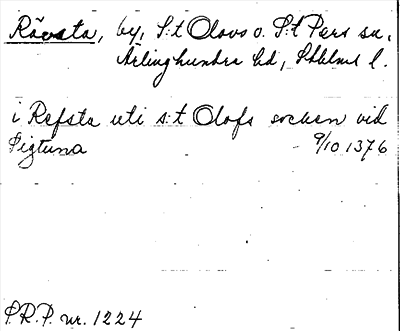 Rävsta, by, S:t Olovs o. S:t Pers sn,
Ärlinghundra hd, Sthlms l.
i Refsta uti s:t Olofs socken vid
Sigtuna 9/10 1376
S.R.P. nr. 1224